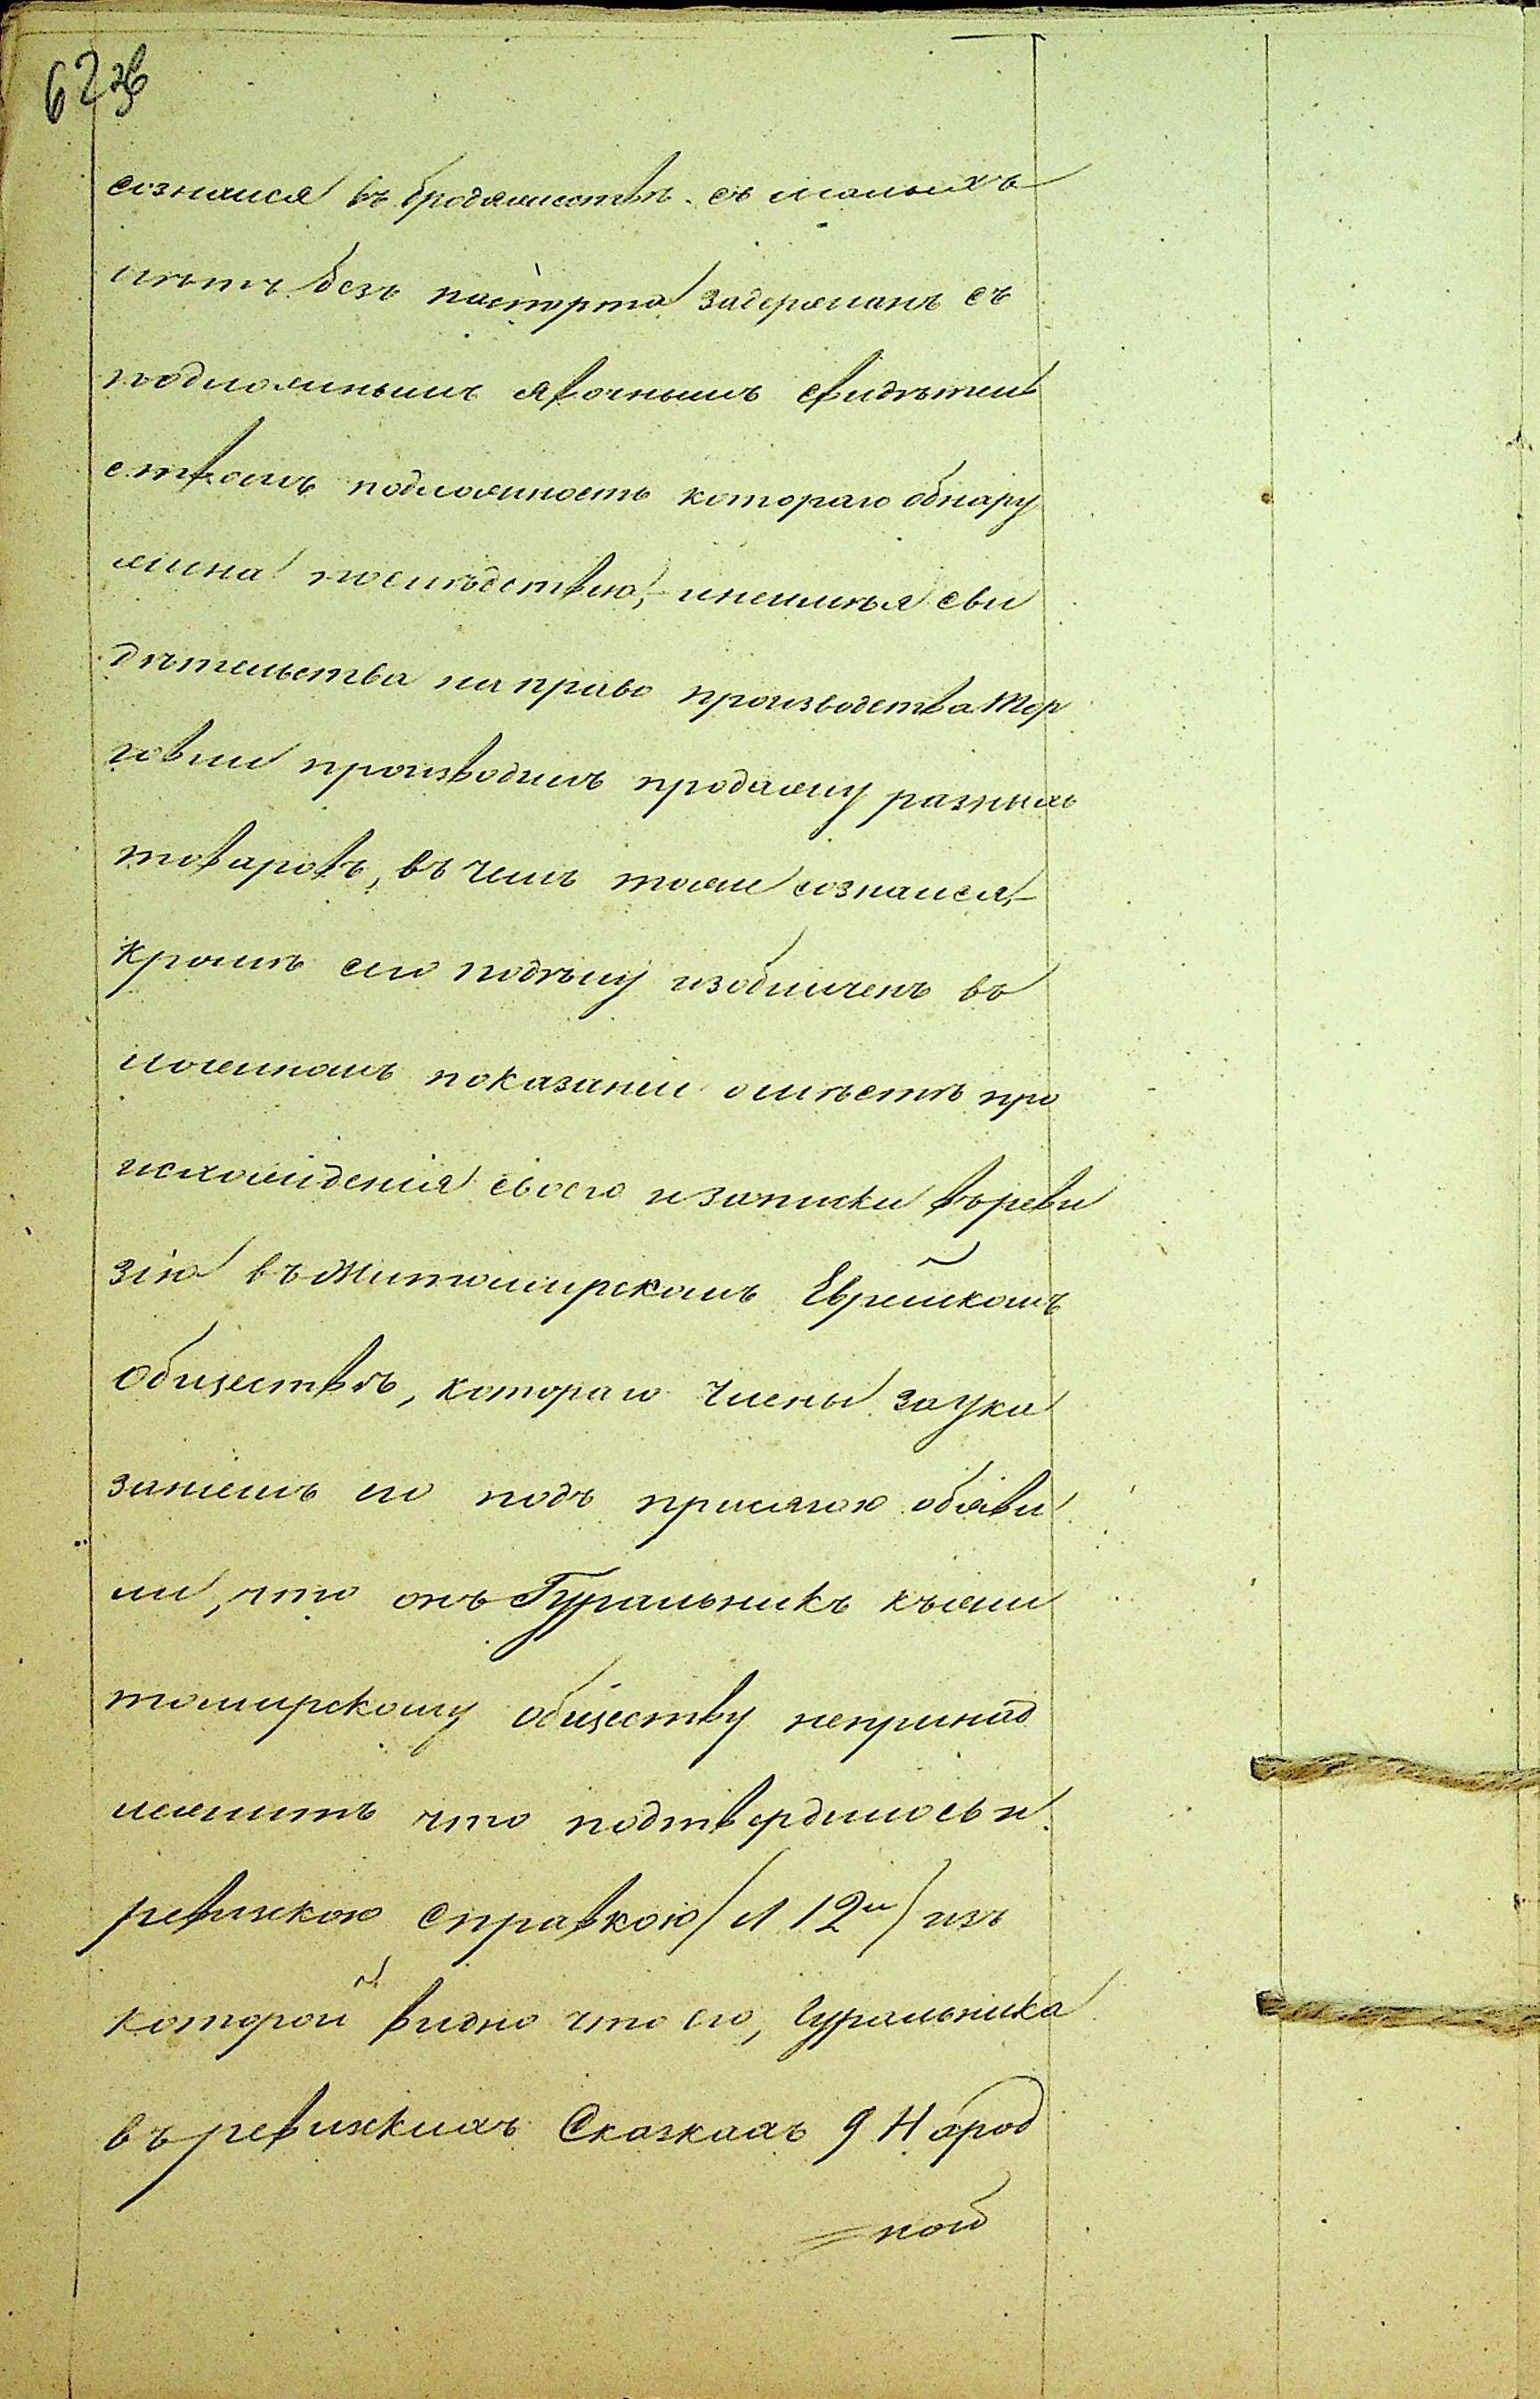 62 зв
сознался въ бродяжествѣ съ малыхъ
лѣтъ безъ паспорта задержанъ съ
подложнымъ явочнымъ свидѣтель
ствомъ подложность котораго обнару
жена послѣдствію, неимѣя сви
дѣтельства на право производства Тор
говли производилъ продажу разныхъ
товаровъ, въ чемъ тоже сознался,
кромѣ сего подѣлу изобличенъ въ
ложномъ показаніи омѣстѣ про
исхожденія своего и записки въ реви
зію въ Житомирскомъ Еврейскомъ
Обществѣ, котораго Члены за ука
заніемъ его подъ присягою объяви
ли, что онъ Гуральникъ къ Жи
томирскому обществу непринад
лежитъ что подтвердилось и
ревизкою Справкою (л 12й) изъ
которой видно что его, Гуральника
въ ревизкихъ Сказкахъ 9 Народ
=ной